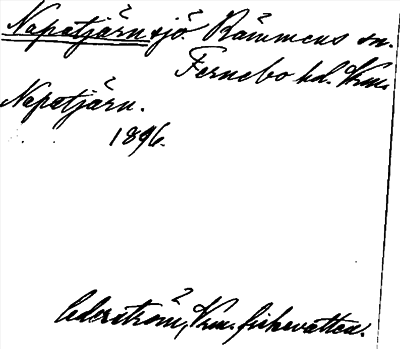 Napetjärn sjö Rämmens sn.
Fernebo hd. Vrm.
Napetjärn.
1896.
Cederström, Vrm. fiskevatten.